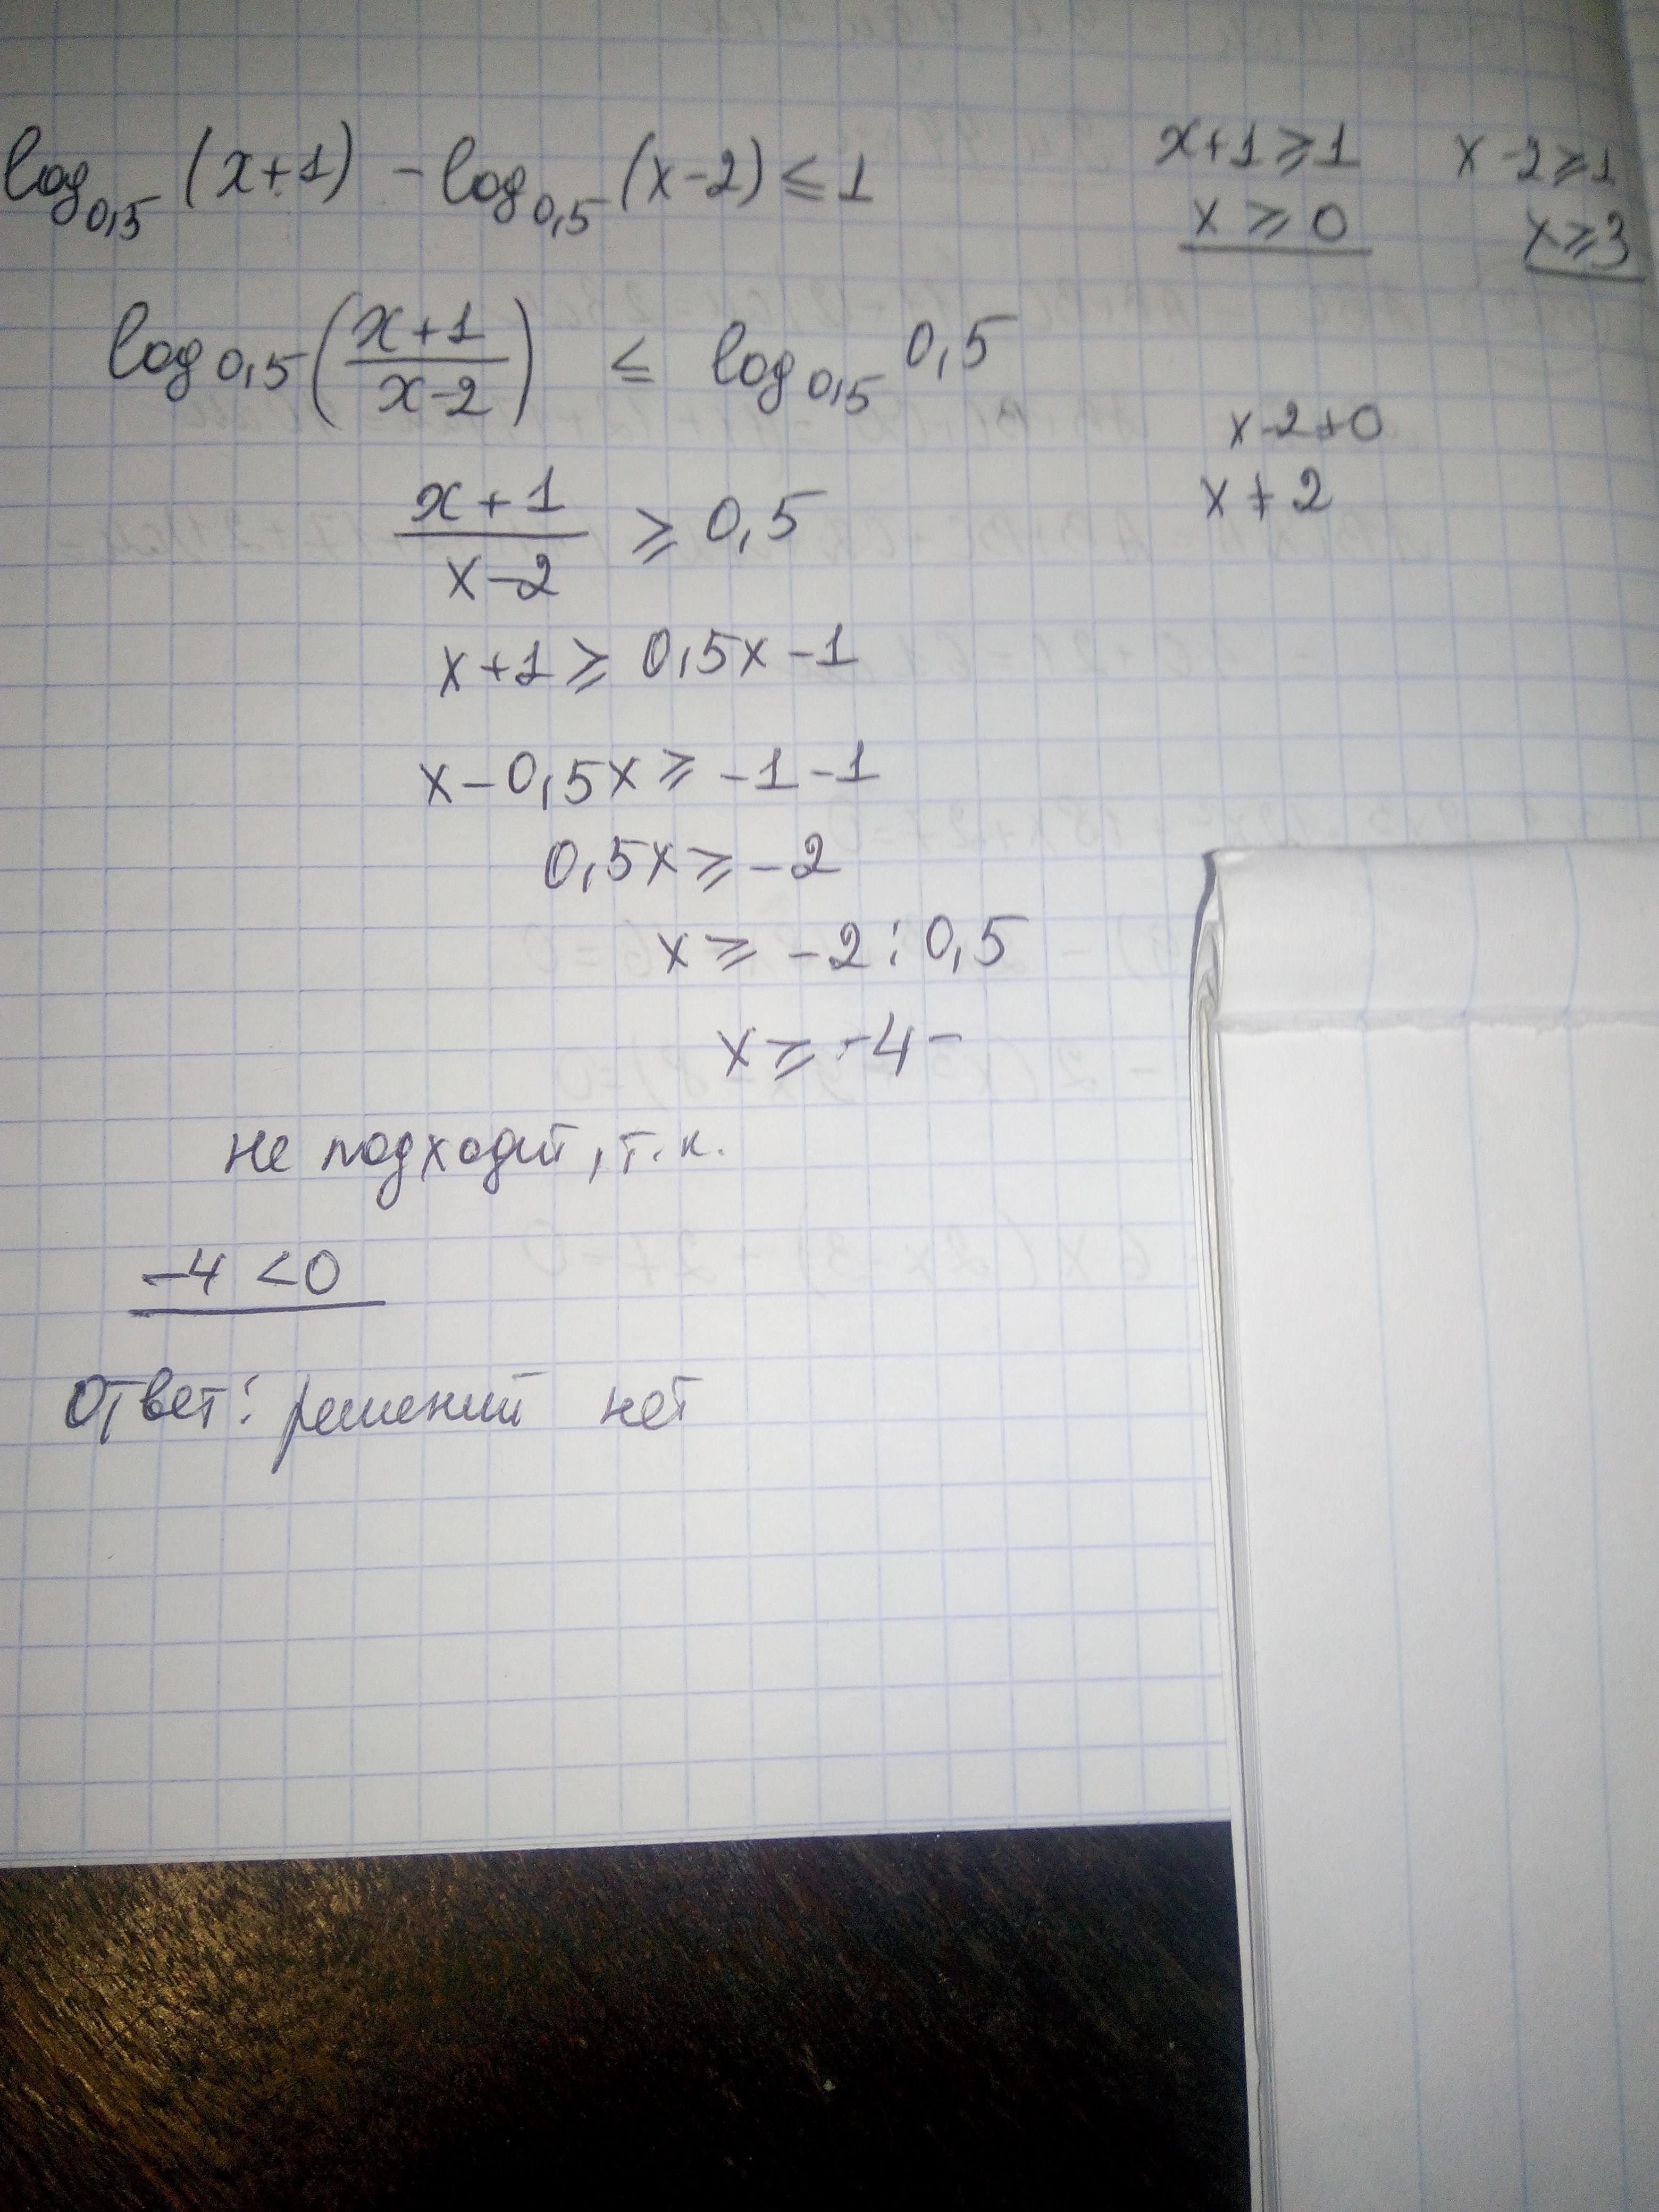 log₀,₅ (x+1) - log₀,₅ (x-2) ≤ 1
x+1 ≥ 1
x ≥ 0
x-2 ≥ 1
x ≥ 3
log₀,₅ ((x+1)/(x-2)) ≤ log₀,₅ 0,5
x-2≠0
x ≠ 2
(x+1)/(x-2) ≥ 0,5
x+1 ≥ 0,5x -1
x - 0,5x ≥ -1 -1
0,5x ≥ -2
x ≥ -2 : 0,5
x ≥ -4
не подходит, т.к.
-4 < 0
Ответ: решений нет